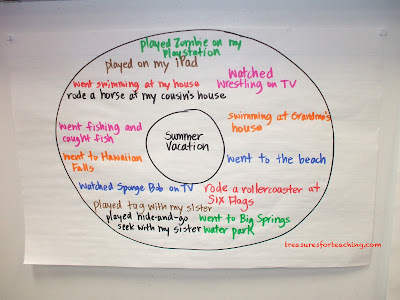 played Zombie on my
Playstation
played on my iPad
watched
wrestling on TV
went swimming at my house
rode a horse at my cousin's house
swimming at Grandma's
house
went fishing and
caught fish
Summer
Vacation
went to Hawaiian
Falls
went to the beach
watched Sponge Bob on TV
rode a rollercoaster at
Six Flags
played tag with my sister
played hide-and-go
seek with my sister
went to Big Springs
water park
treasuresforteaching.com